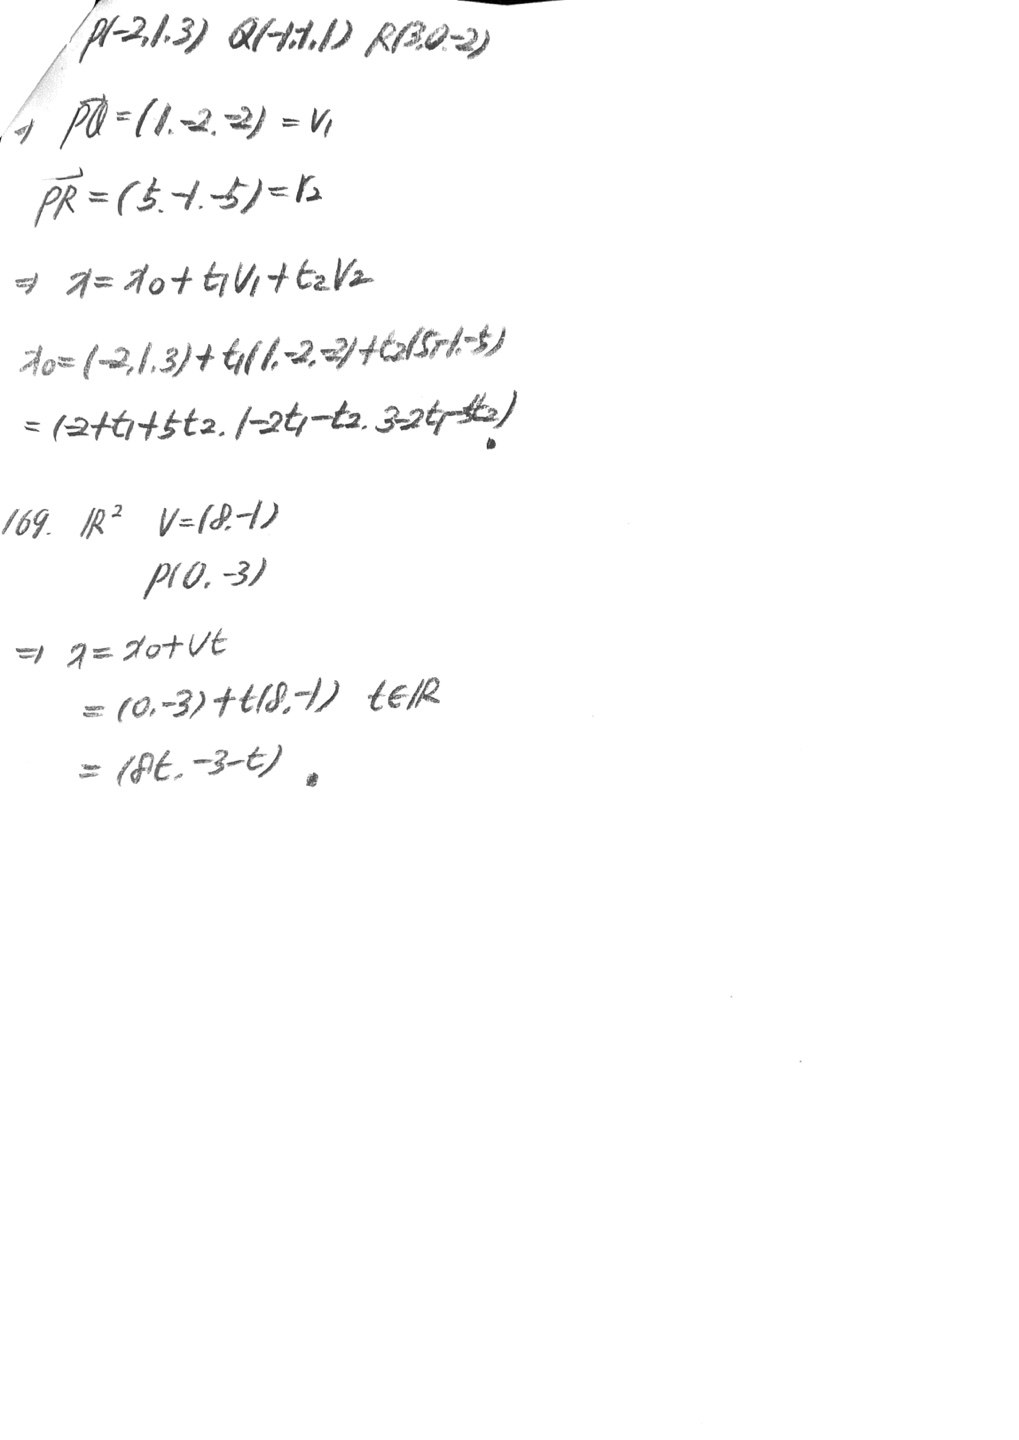 P(-2,1.3) Q(-1.-1.1) R(3.0.-2)
⇒ PQ⃗ = (1.-2.-2) = V₁
PR⃗ = (5.-1.-5) = r₂
⇒ x = x₀ + t₁V₁ + t₂V₂
x₀ = (-2,1.3) + t₁(1.-2.-2) + t₂(5,-1.-5)
= (-2+t₁+5t₂. 1-2t₁-t₂. 3-2t₁-5t₂).
169. ℝ² V=(8.-1)
P(0. -3)
⇒ x = x₀+Vt
= (0.-3)+t(8.-1) t∈ℝ
= (8t. -3-t) .